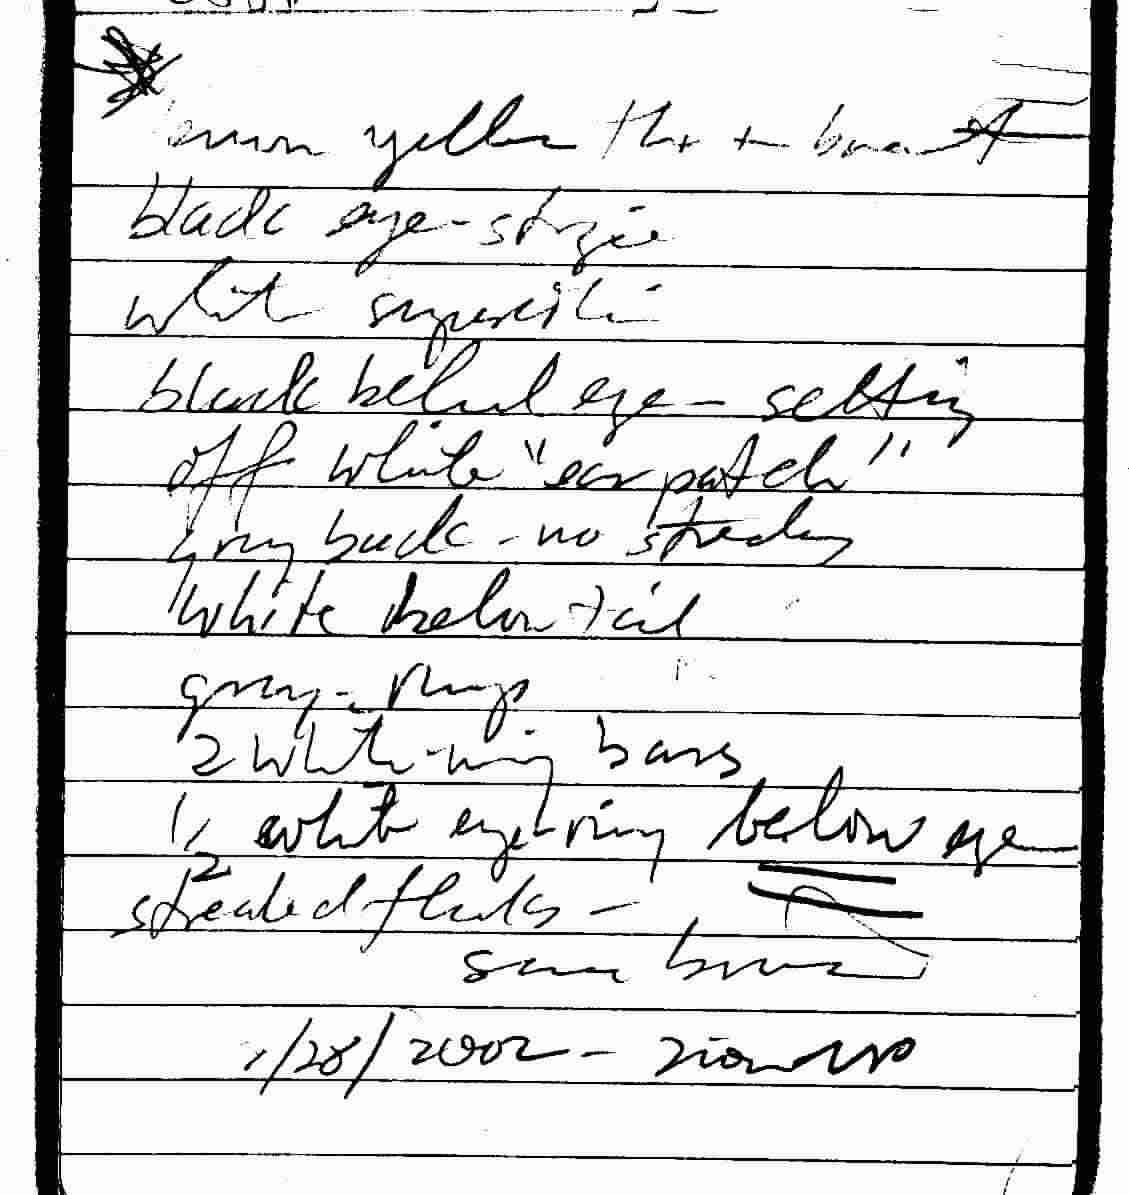 lemon yellow thr + breast
black eye-stripe
white supercili
black behind eye - setting
off white "ear patch"
gray back - no streaking
white below tail
gray rump
2 white wing bars
1/2 white eye-ring below eye
streaked flanks -
same
1/28/2002 - Zion NP